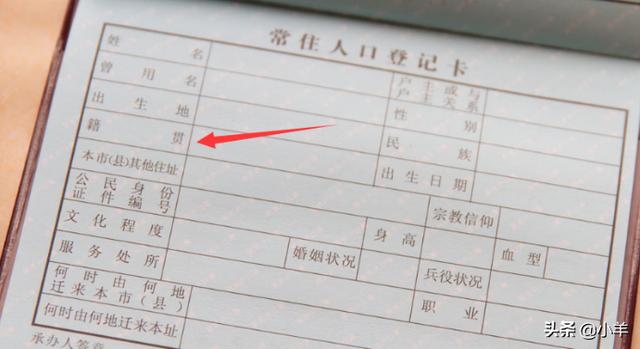 常住人口登记卡
姓名 户主或与户主关系
曾用名 性别
出生地 民族
籍贯 出生日期
本市(县)其他住址 宗教信仰
公民身份证件编号 身高 血型
文化程度 婚姻状况 兵役状况
服务处所 职业
何时由何地迁来本市(县)
何时由何地迁来本址
承办人签章
头条 @小羊